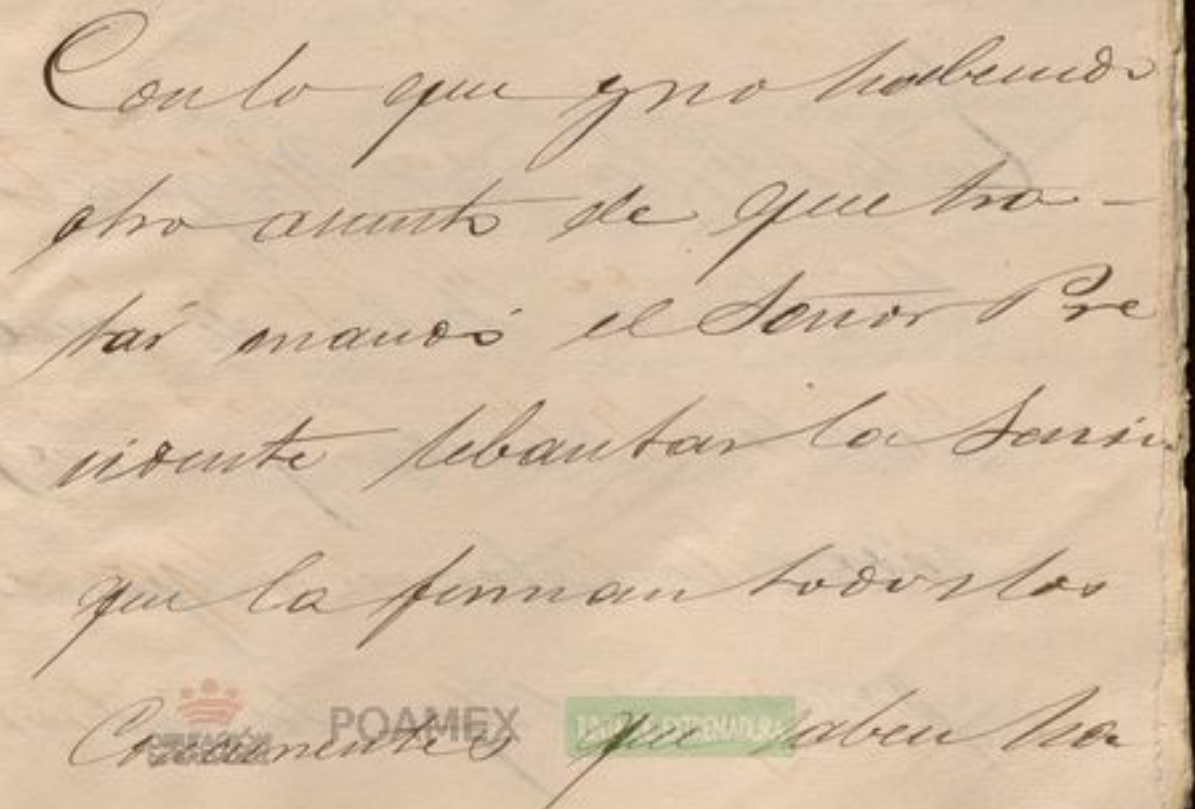 Con lo que y no habiendo
otro asunto de que tra-
tár mandó el Señor Pre
sidente lebantar la Sesión
que la firman todos los
Concurrentes que saben ha
POAMEX